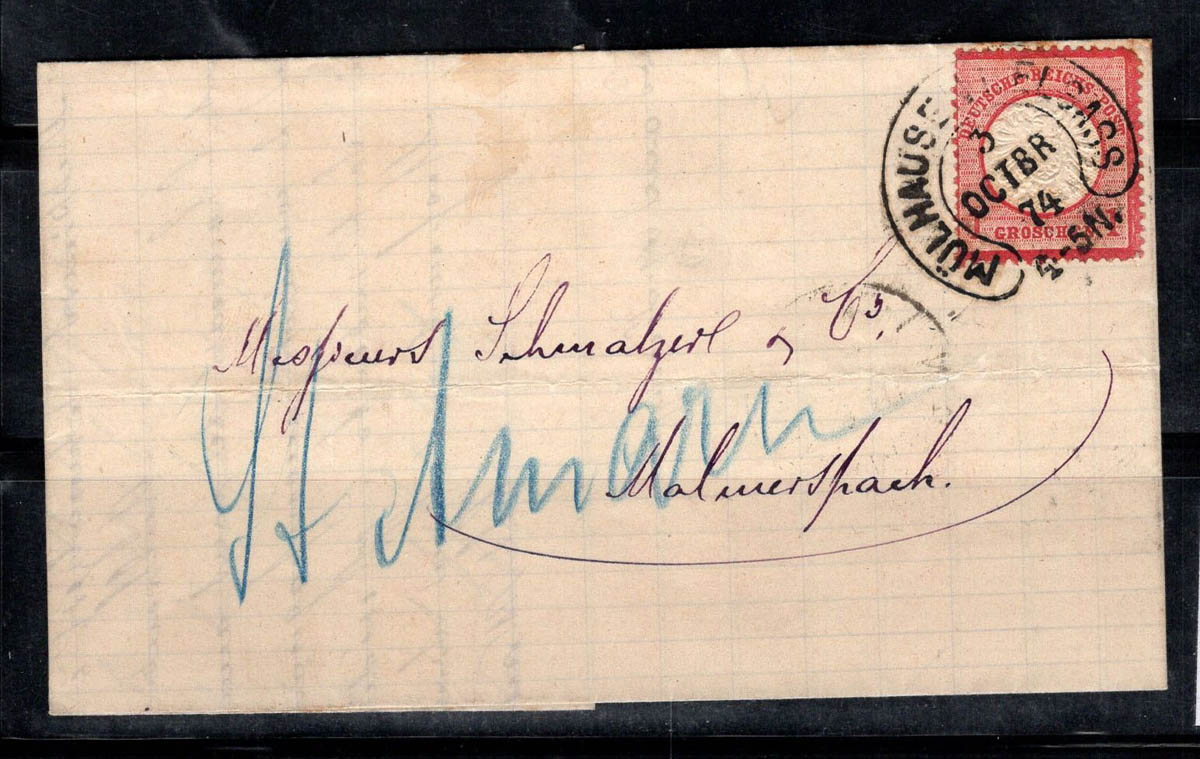 DEUTSCHE REICHS-POST
GROSCHEN
MÜLHAUSEN ELSASS
3
OCTBR
74
4-5N.
Messieurs Schmalzerl & Cº,
Malmerspach.
St Amarin